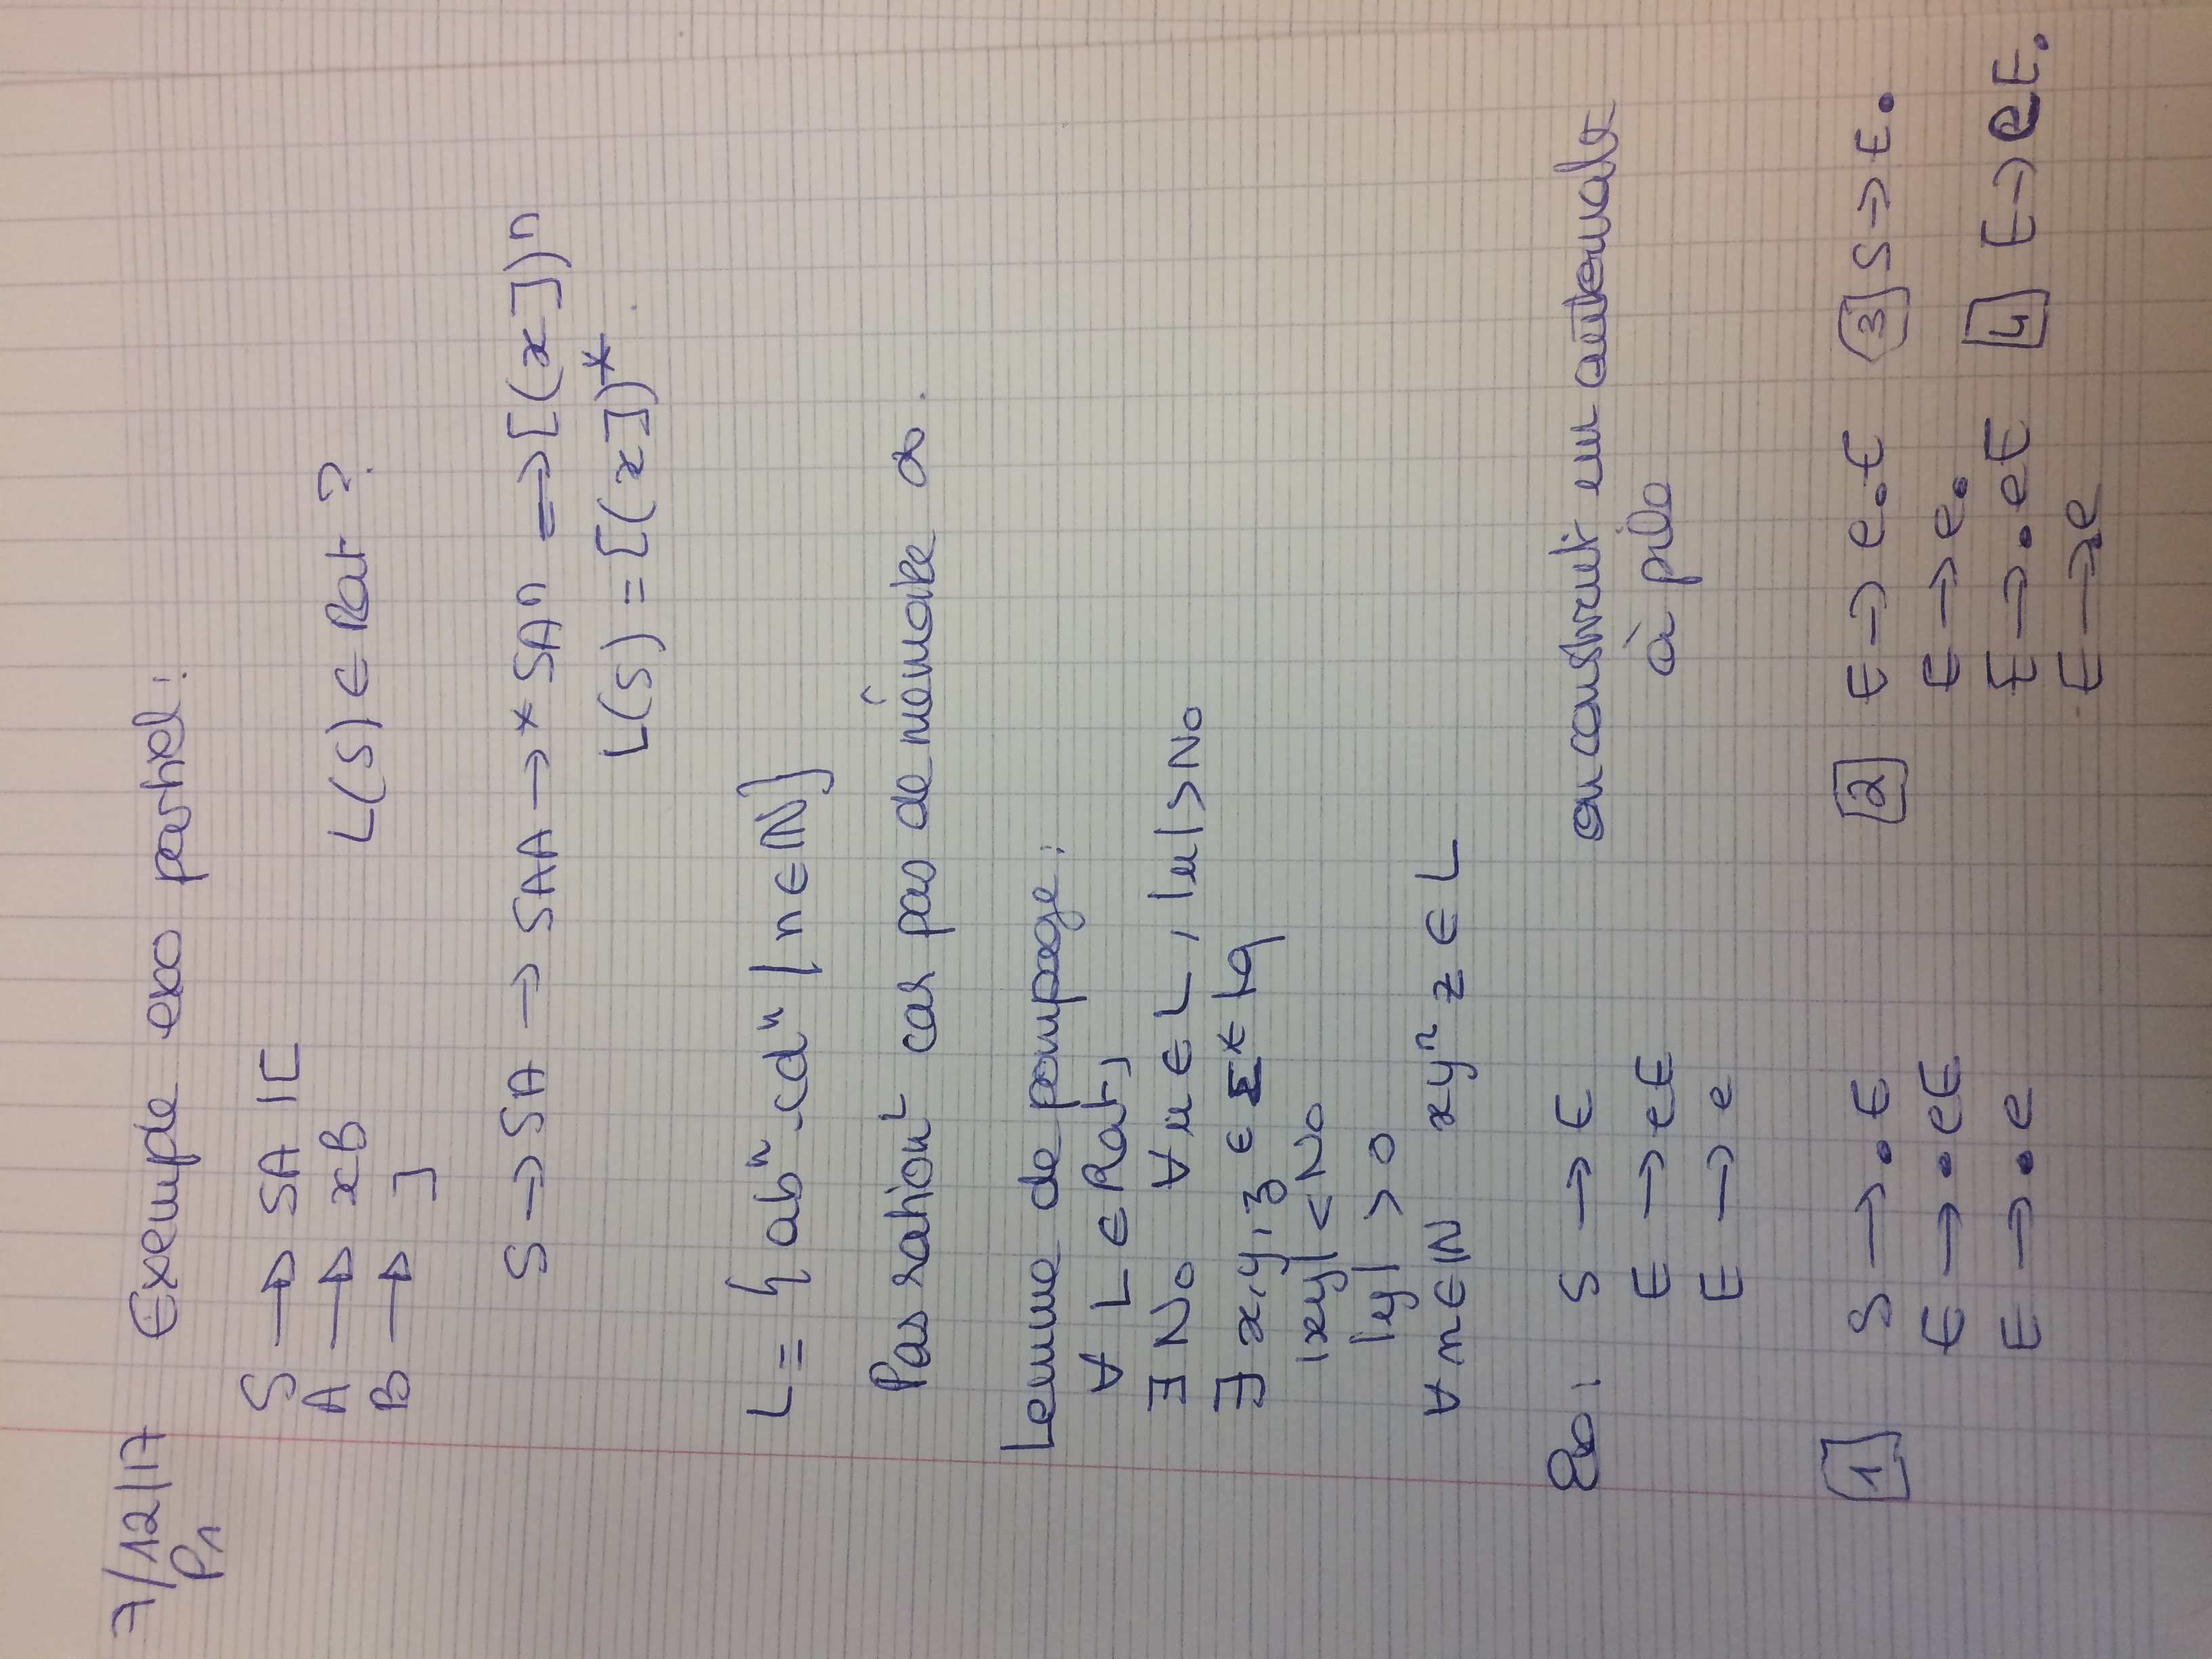 7/12/17 Exemple exo partiel :
P1
S → SA | [
A → xB
L(S) ∈ Rat ?
B → ]
S → SA → SAA →* SAn ⟹ [(x])n
L(S) = [(x])*.
L = { abn cdn / n ∈ ℕ }
Pas rationL car pas de mémoire ∞.
Lemme de pompage :
∀ L ∈ Rat,
∃ No ∀u ∈ L, |u| > No
∃ x, y, z ∈ Σ* tq
|xy| < No
|y| > 0
∀ n ∈ ℕ xyn z ∈ L
Exo : S → E on construit un automate
E → eE à pile
E → e
1 S → .E 2 E → e.E 3 S → E.
E → .eE E → e.
E → .e E → .eE 4 E → eE.
E → .e